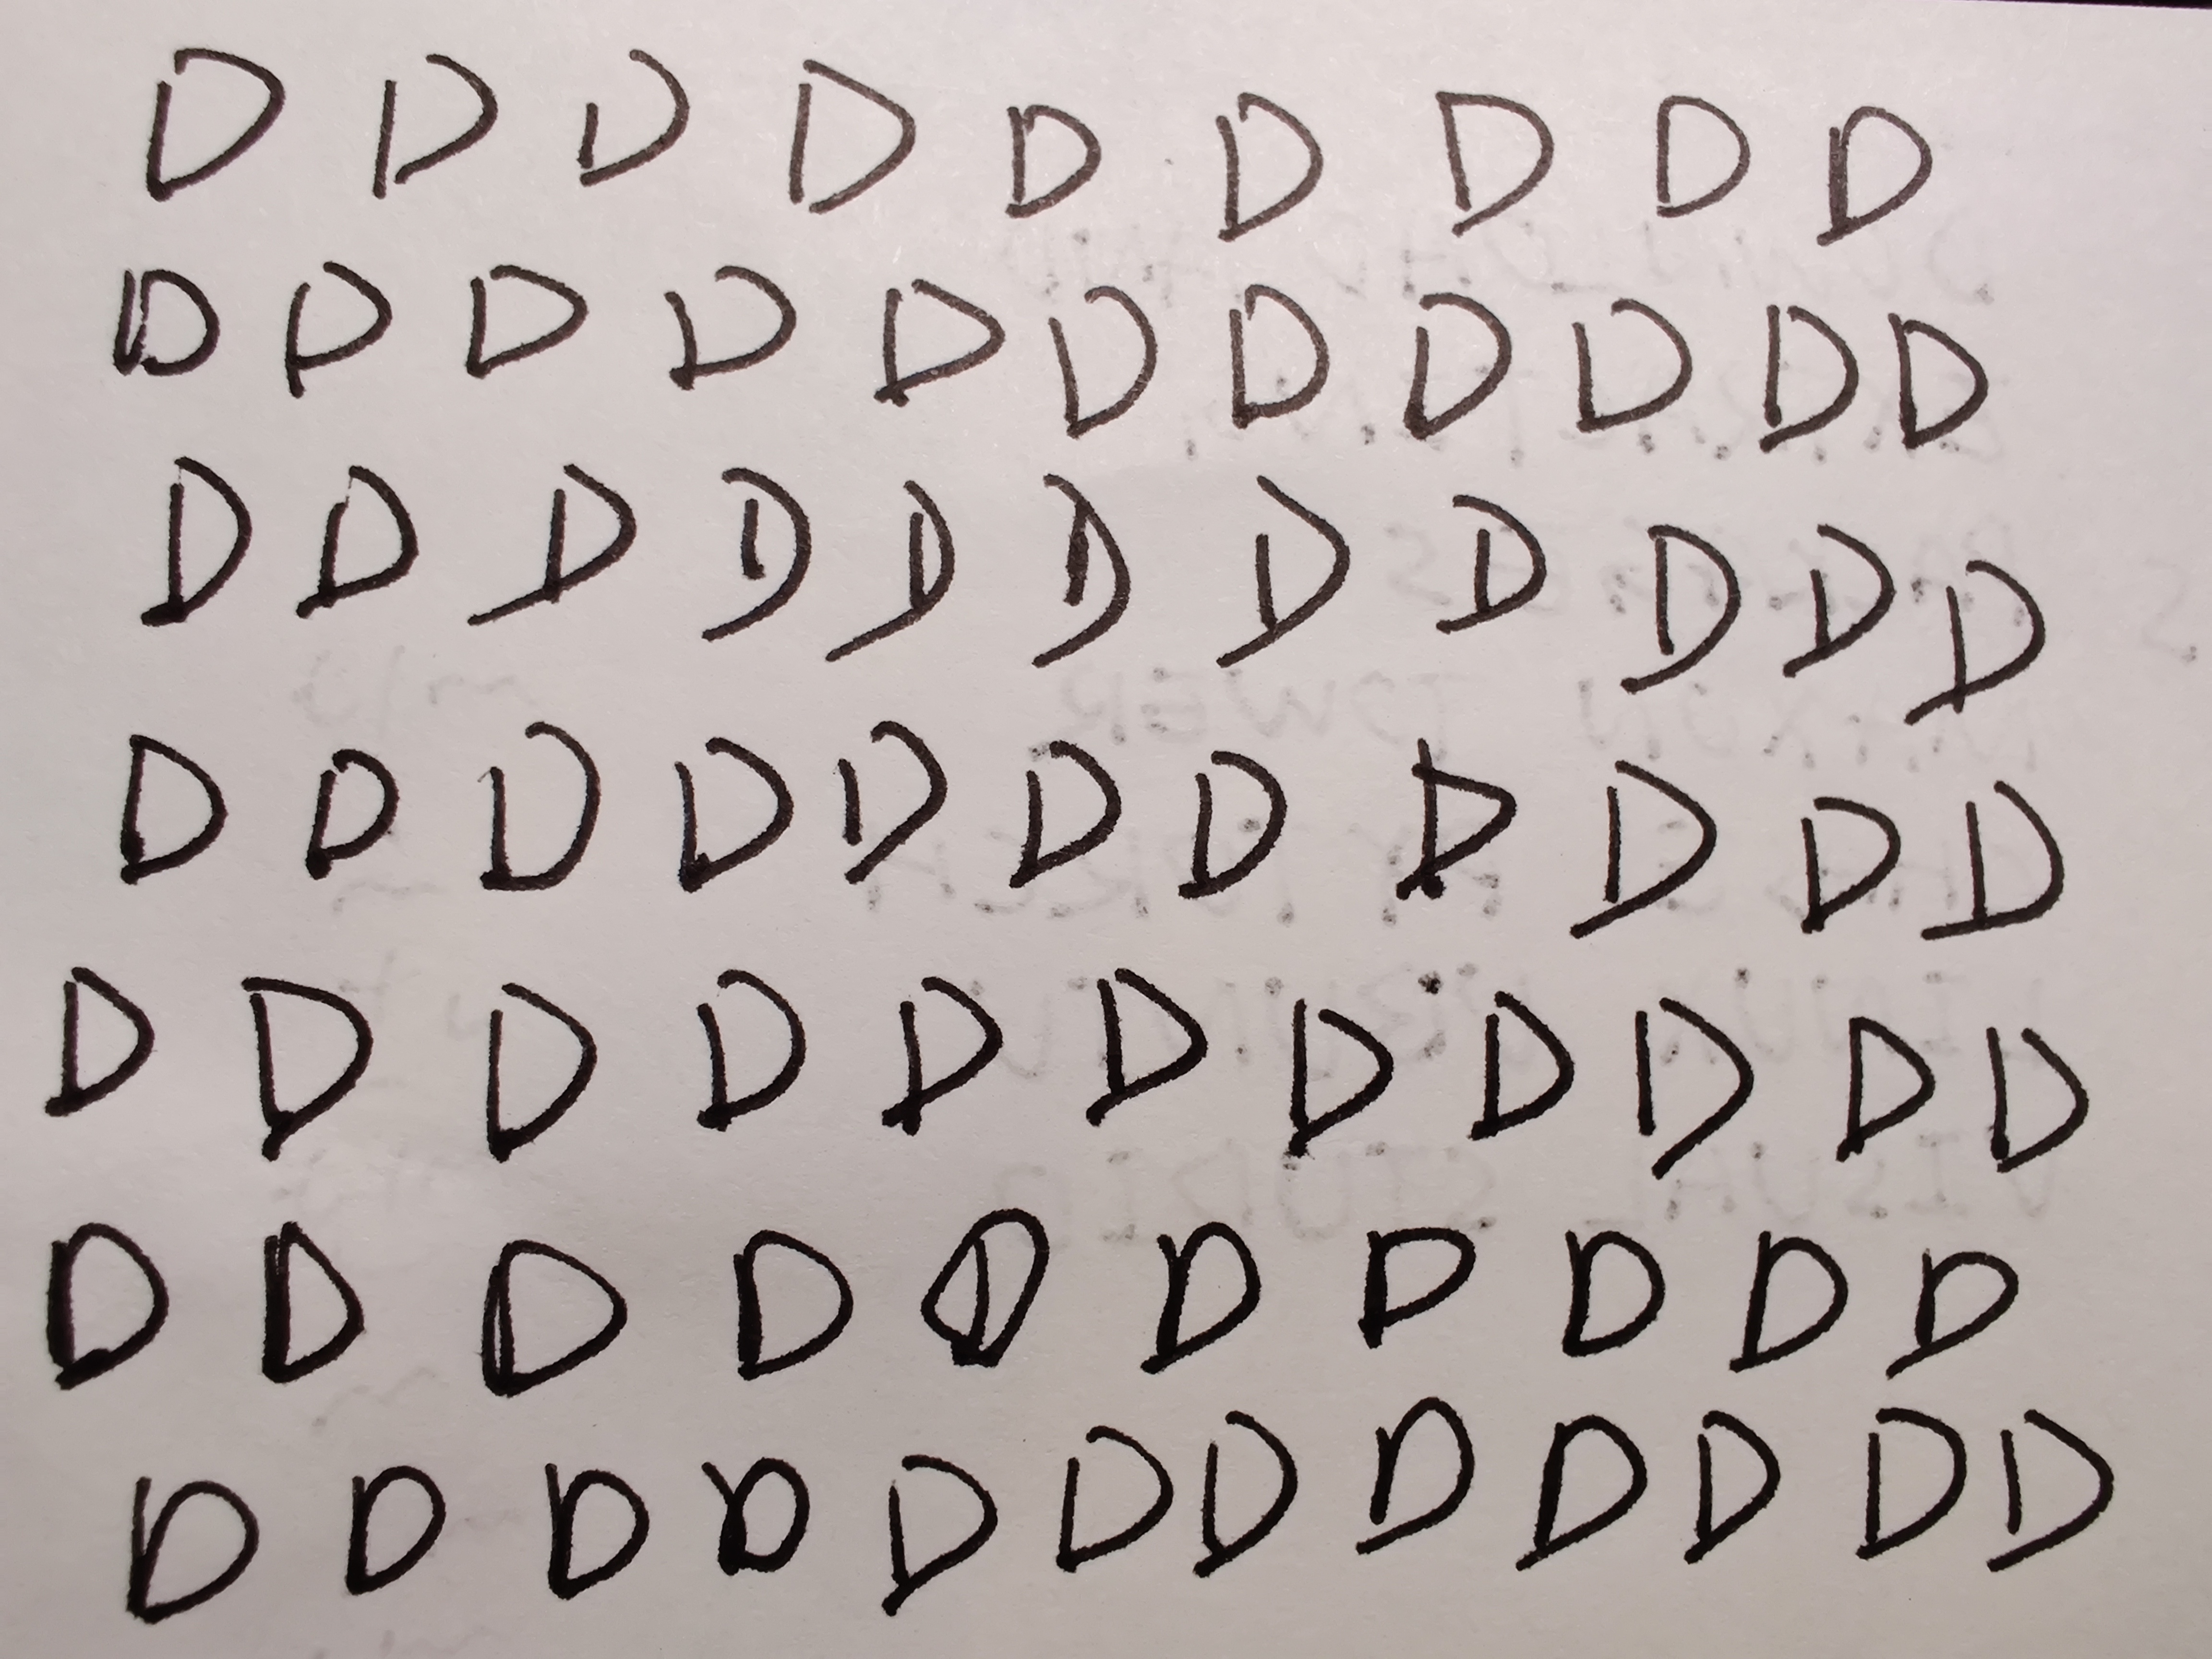 D D D D D D D D D
D D D D D D D D D D D
D D D D D D D D D D D
D D D D D D D D D D D
D D D D D D D D D D D
D D D D D D D D D D
D D D D D D D D D D D D